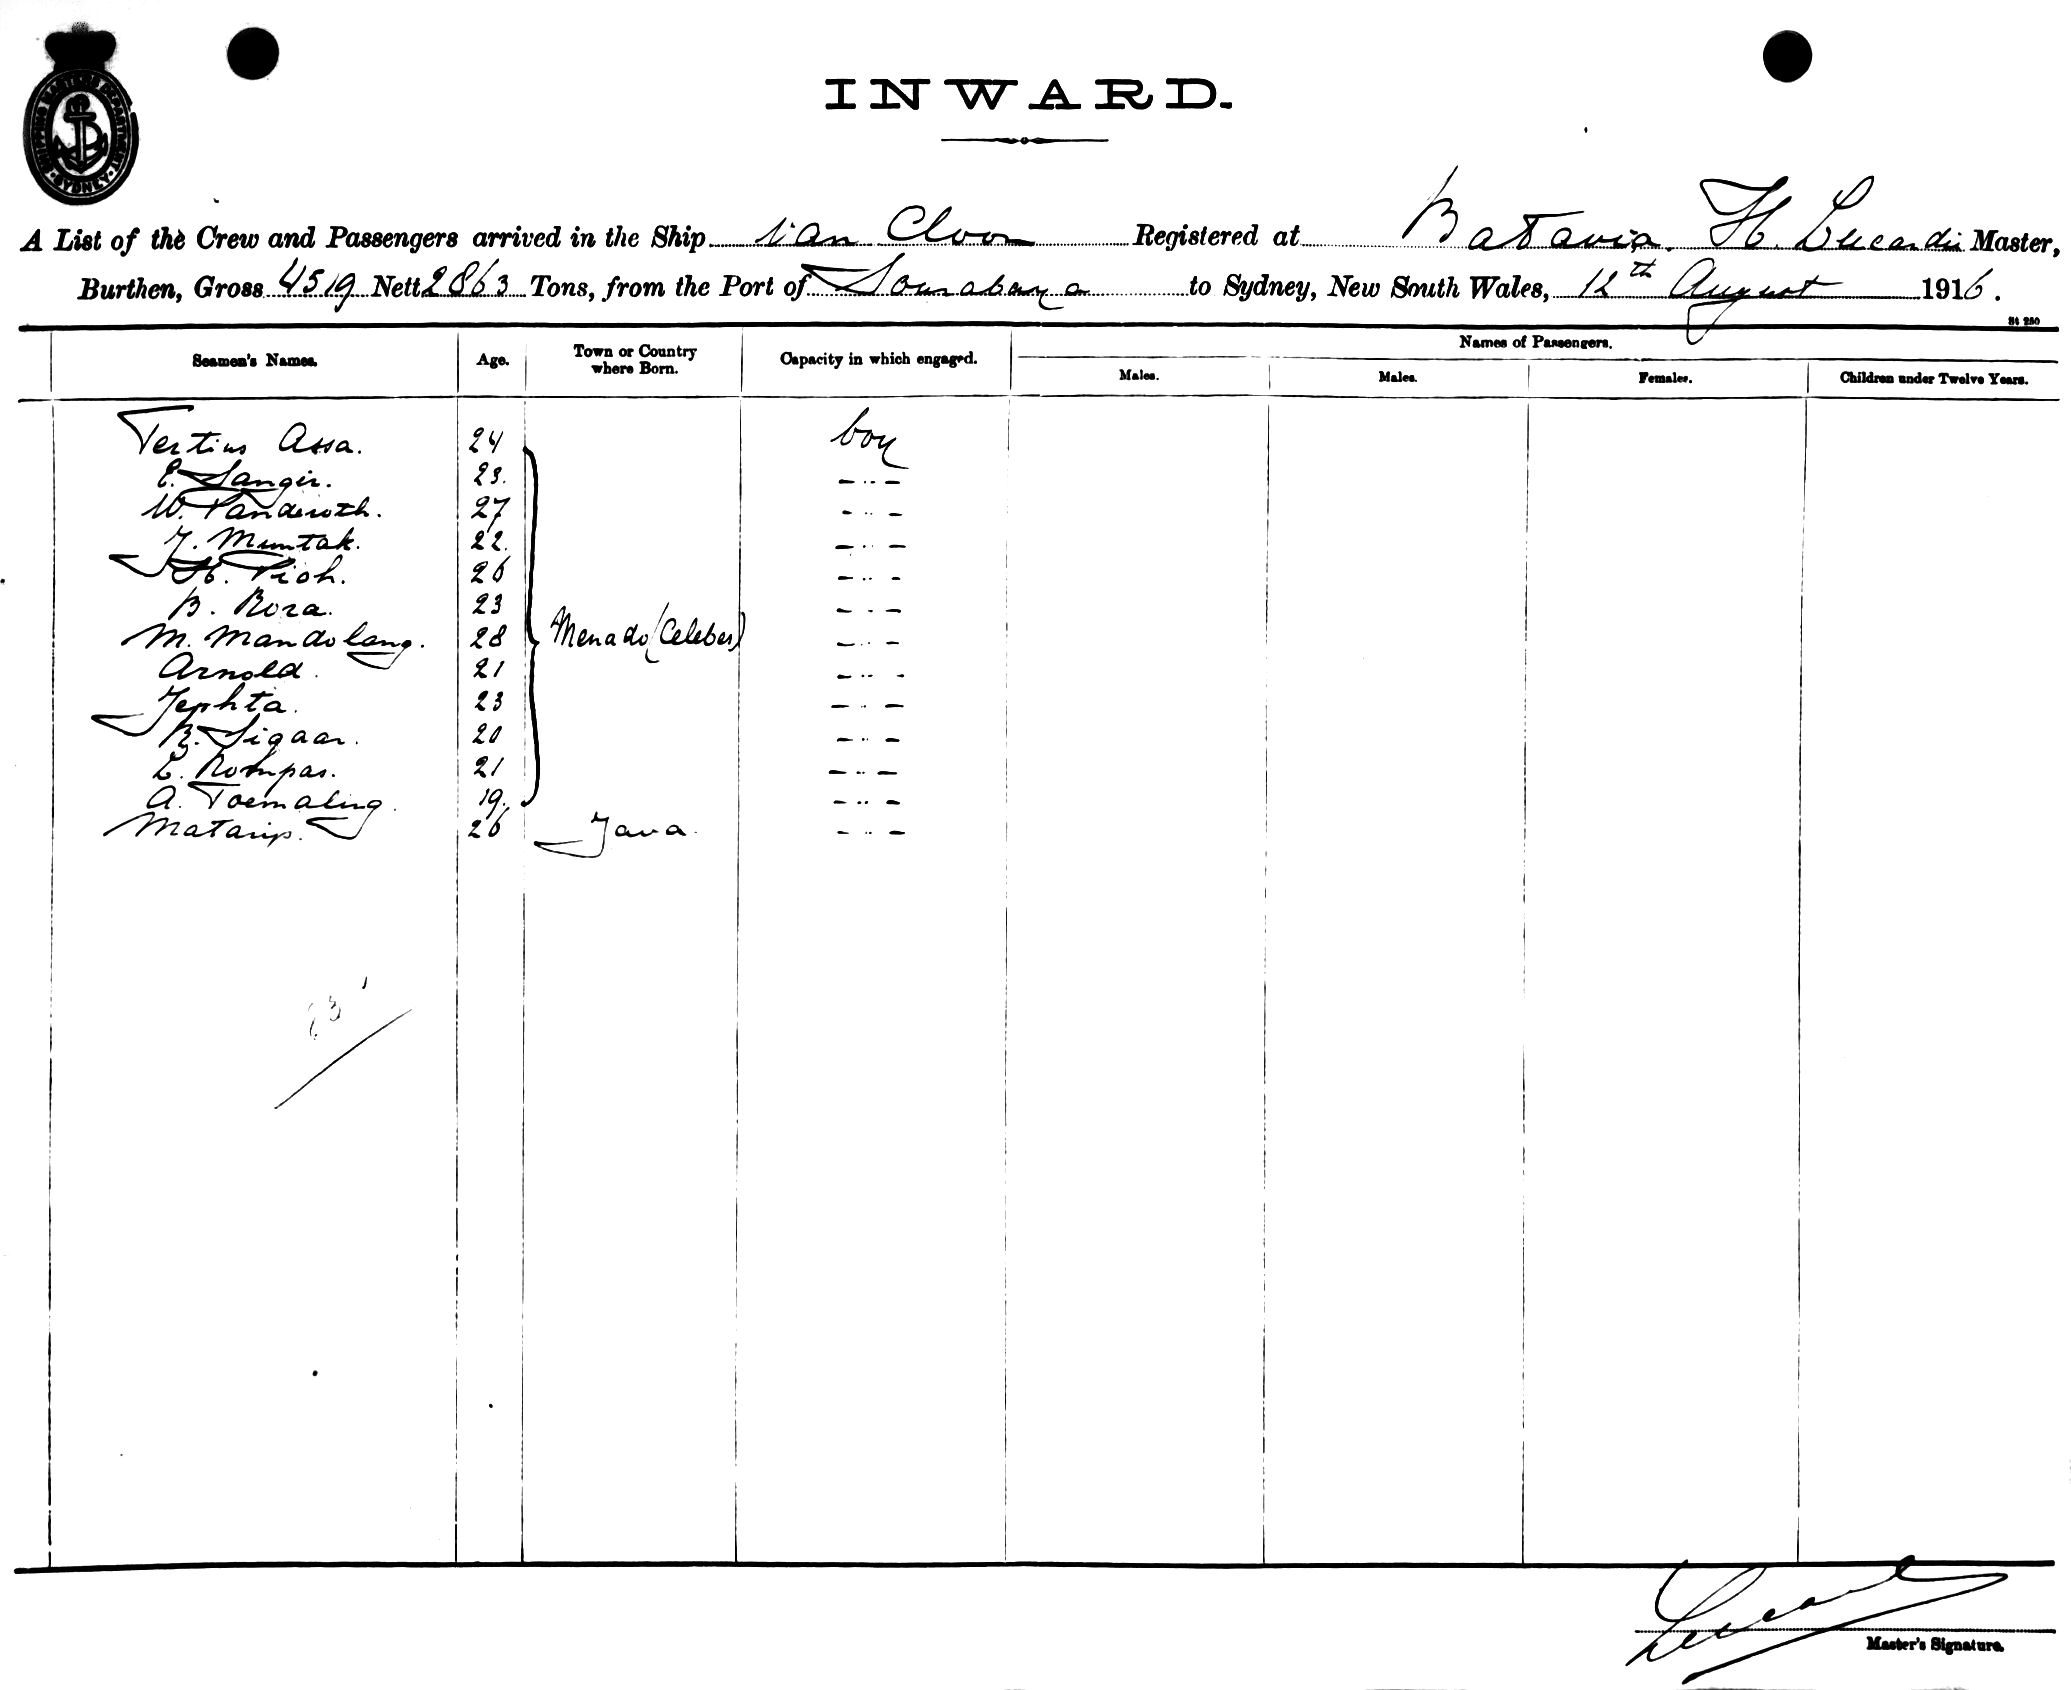 SHIPPING MASTER'S DEPARTMENT
SYDNEY
INWARD.
A List of the Crew and Passengers arrived in the Ship Van Cloon Registered at Batavia. H. Lucardie Master,
Burthen, Gross 4519 Nett 2863 Tons, from the Port of Sourabaya to Sydney, New South Wales, 12th August 1916.
St 250
Seamen's Names. Age. Town or Country where Born. Capacity in which engaged. Names of Passengers.
Males. Males. Females. Children under Twelve Years.
Tertius Assa. 24 boy
E. Sangir. 23. - ,, -
W. Panderoth. 27 - ,, -
J. Muntak. 22. - ,, -
H. Pioh. 26 - ,, -
B. Rora. 23 - ,, -
M. Mandolang. 28 Menado (Celebes) - ,, -
Arnold. 21 - ,, -
Jephta. 23 - ,, -
R. Sigaar. 20 - ,, -
L. Rompas. 21 - ,, -
A. Toemaling. 19. - ,, -
Matarip. 26 Java. - ,, -
Master's Signature.